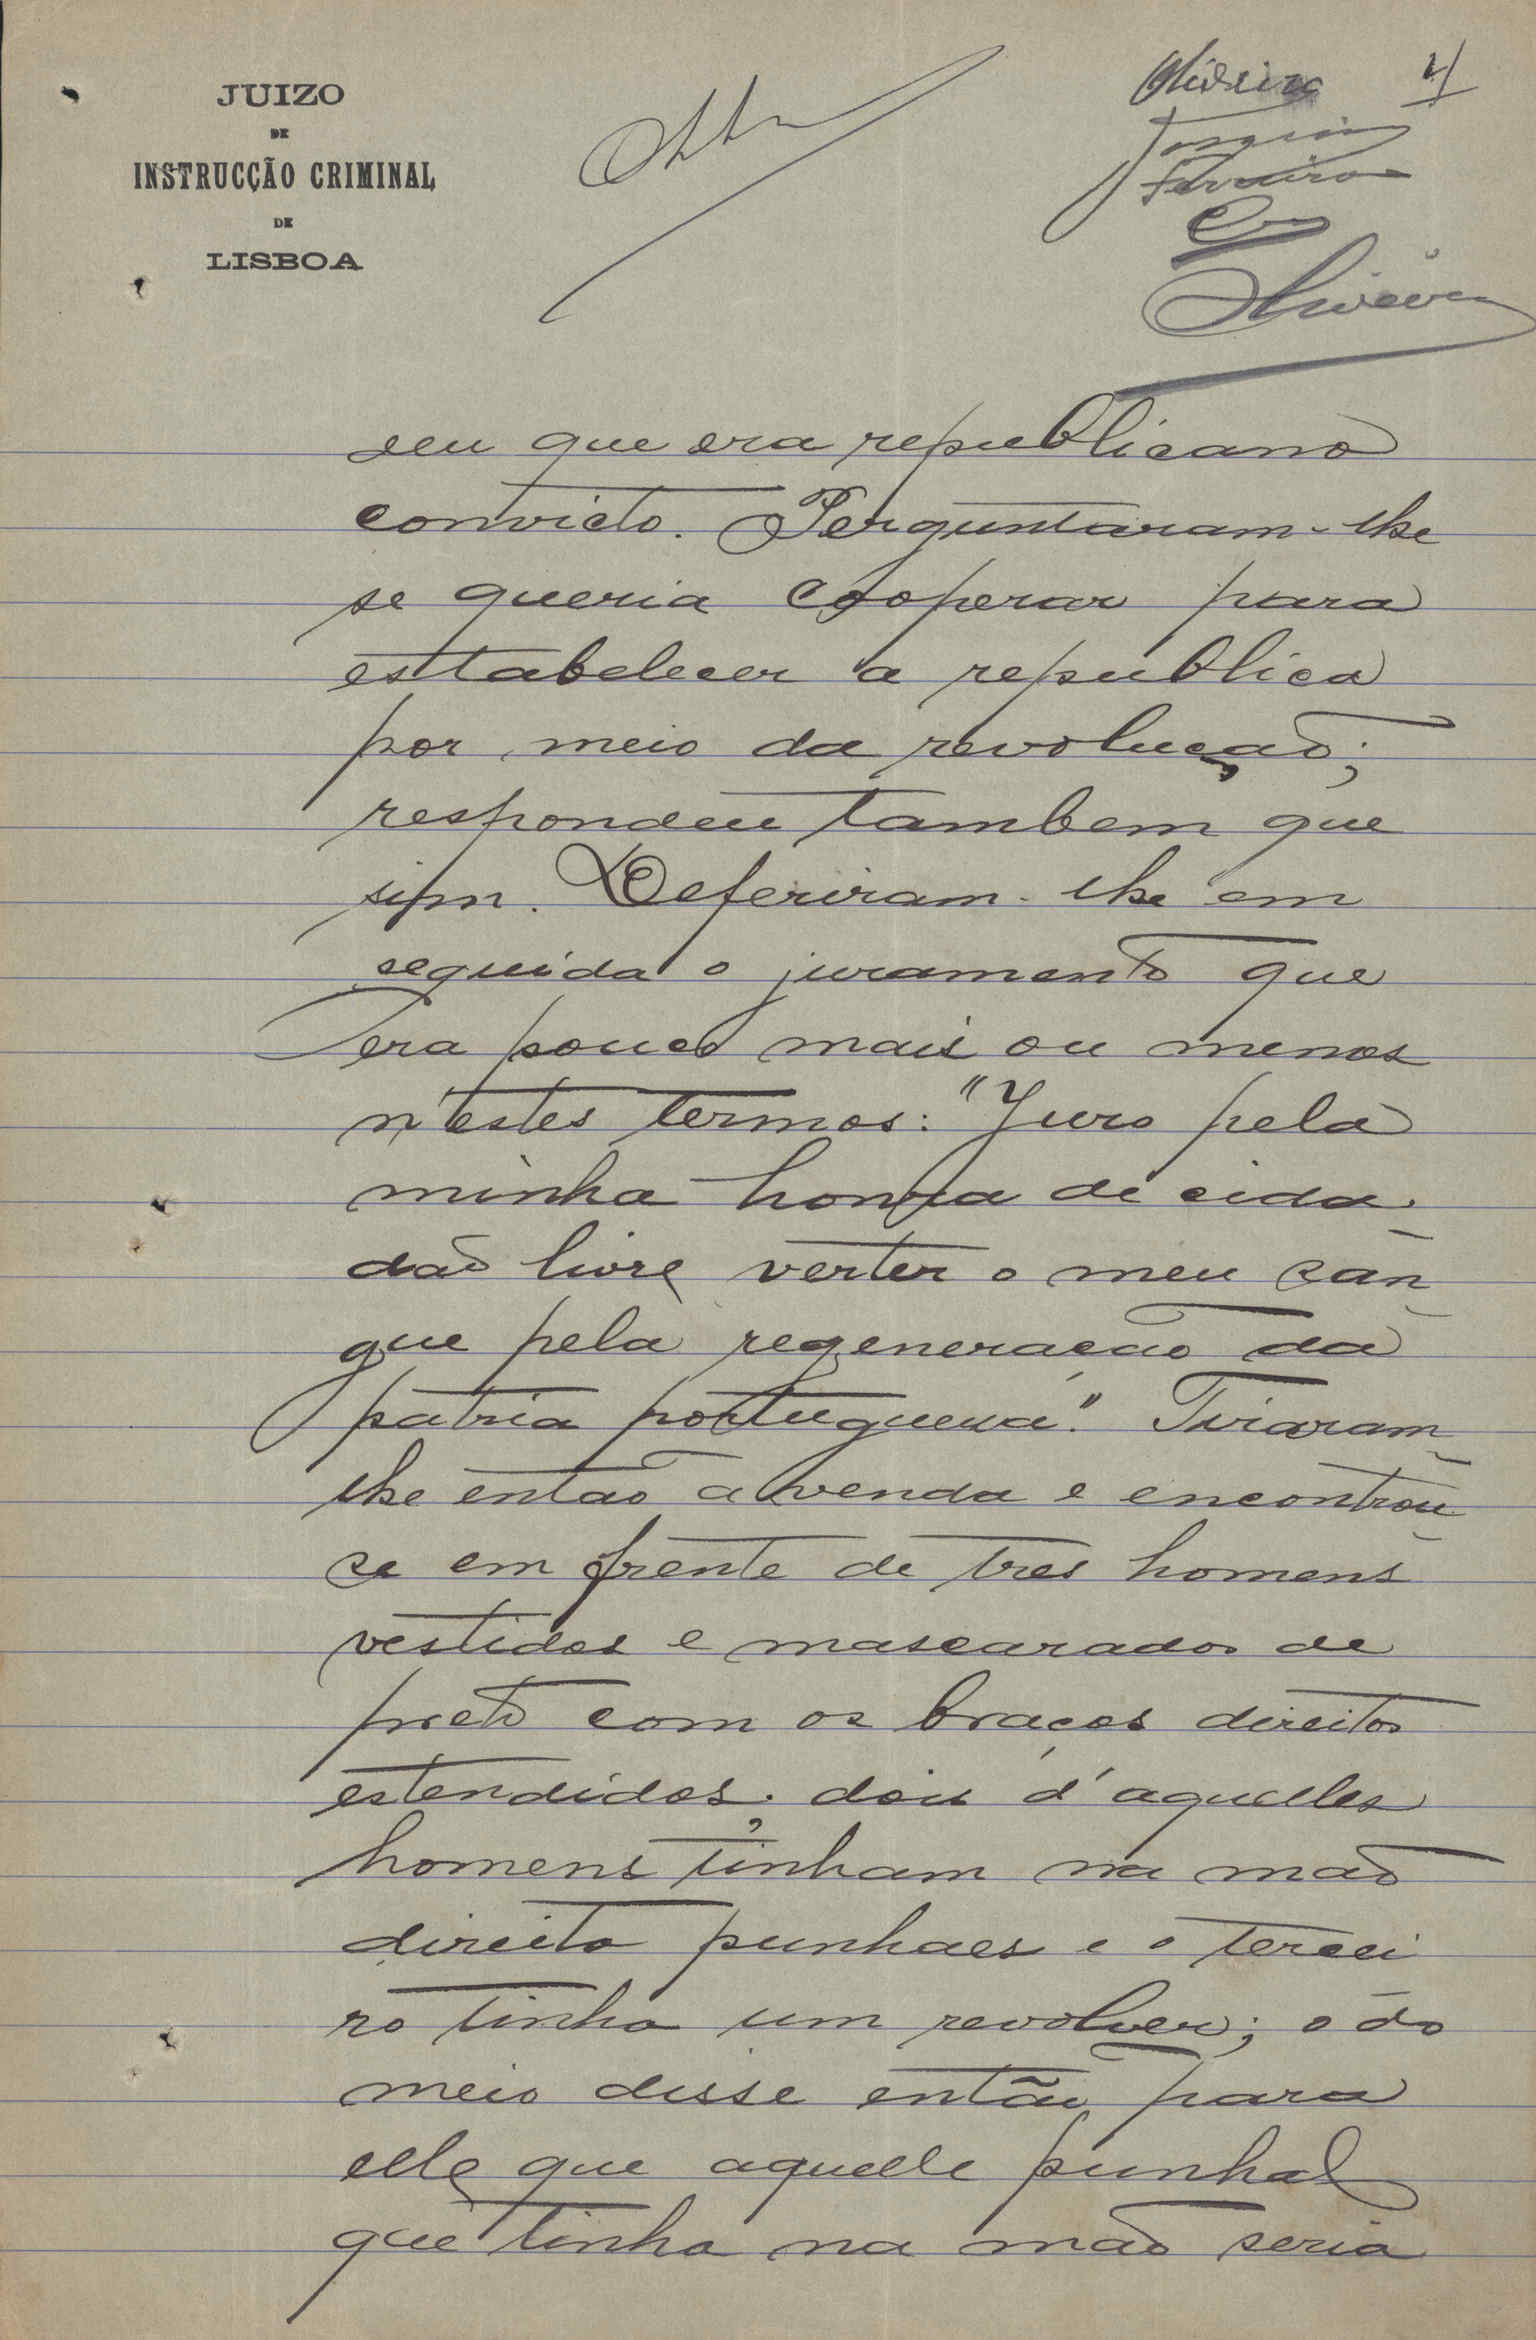 JUIZO
DE
INSTRUCÇÃO CRIMINAL
DE
LISBOA
Oliveira 4
Ferreira
Oliveira
deu que era republicano
convicto. Perguntaram-lhe
se queria cooperar para
estabelecer a republica
por meio da revolução;
respondeu tambem que
sim. Deferiram-lhe em
seguida o juramento que
era pouco mais ou menos
n'estes termos: "Juro pela
minha honra de cida-
dão livre verter o meu san-
gue pela regeneração da
patria portugueza". Tiraram-
lhe então a venda e encontrou-
se em frente de tres homens
vestidos e mascarados de
preto com os braços direitos
estendidos; dois d'aquelles
homens tinham na mão
direita punhaes e o tercei
ro tinha um revolver; o do
meio disse então para
elle que aquelle punhal
que tinha na mão seria